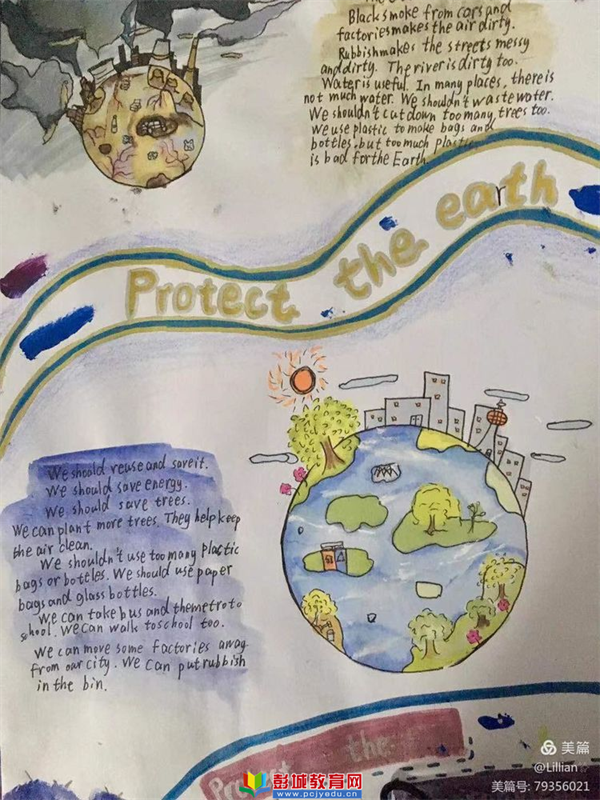 Black smoke from cars and
factories makes the air dirty.
Rubbish makes the streets messy
and dirty. The river is dirty too.
Water is useful. In many places, there is
not much water. We shouldn't waste water.
We shouldn't cut down too many trees too.
We use plastic to make bags and
bottles, but too much plastic
is bad for the Earth.
Protect the earth
We should reuse and save it.
We should save energy.
We should save trees.
We can plant more trees. They help keep
the air clean.
We shouldn't use too many plastic
bags or bottles. We should use paper
bags and glass bottles.
We can take bus and the metro to
school. We can walk to school too.
We can move some factories away
from our city. We can put rubbish
in the bin.
Protect the
美篇
@Lillian
美篇号: 79356021
彭城教育网
www.pcjyedu.cn